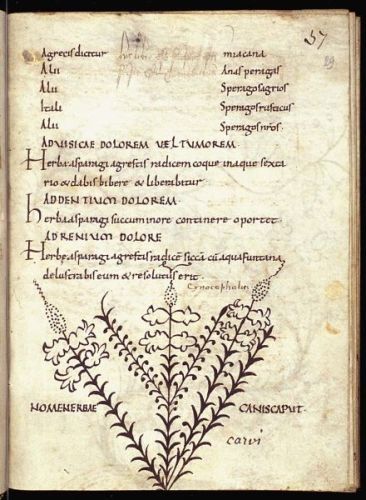 37
29
Agrecis dicitur miacana
Alii Anas peragas
Alii Sperago sagrios
Itali Sperago rusticus
Alii Sperago nr̄os.
AD VISICAE DOLOREM VEL TUMOREM
Herba asparagi agrestis radicem coque in aqua sexta
rio & dabis bibere & liberabitur
AD DENTIUM DOLOREM
herba asparagi sucum in ore continere oportet
AD RENIUM DOLORE
Herbe asparagi agrestis radicē siccā cū aqua funtana
delustrabis eum & resolutus erit.
Cynocephalin
NOMEN ERBAE CANIS CAPUT
carui